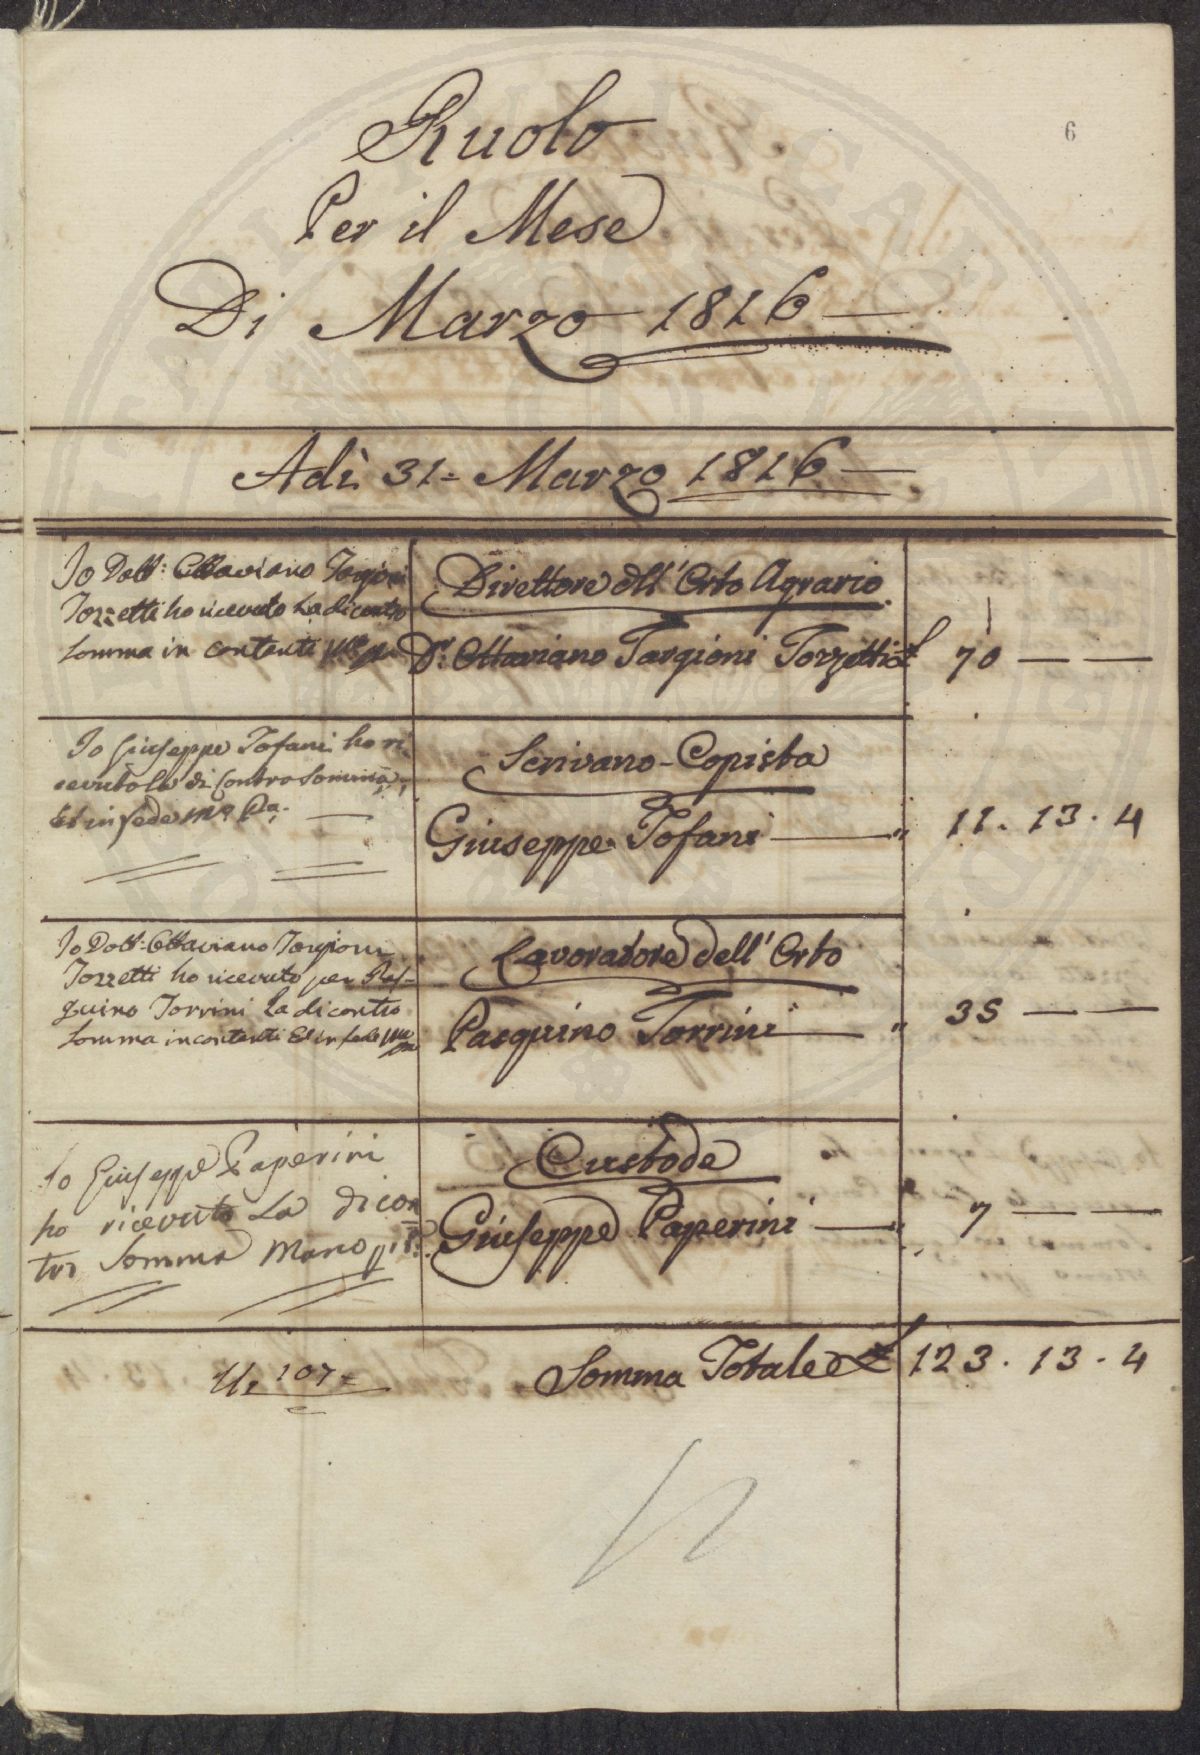 6
Ruolo
Per il Mese
Di Marzo 1816
Adì 31 = Marzo 1816
Io Dott: Ottaviano Targioni
Tozzetti ho ricevuto la dicontro
somma in contanti
Direttore dell' Orto Agrario
Dr. Ottaviano Targioni Tozzetti £ 70 — —
Io Giuseppe Tofani ho ri
cevuto la di Contro Somma,
Ed in fede mo. pa.
Scrivano-Copista
Giuseppe Tofani — " 11. 13. 4
Io Dott: Ottaviano Targioni
Tozzetti ho ricevuto per Pas-
quino Torrini la dicontro
somma in contanti Ed in fede
Lavoratore dell' Orto
Pasquino Torrini — " 35 — —
Io Giuseppe Paperini
ho ricevuto La dicon
tro Somma Mano
Custode
Giuseppe Paperini — " 7 — —
107 =
Somma Totale £ 123. 13. 4